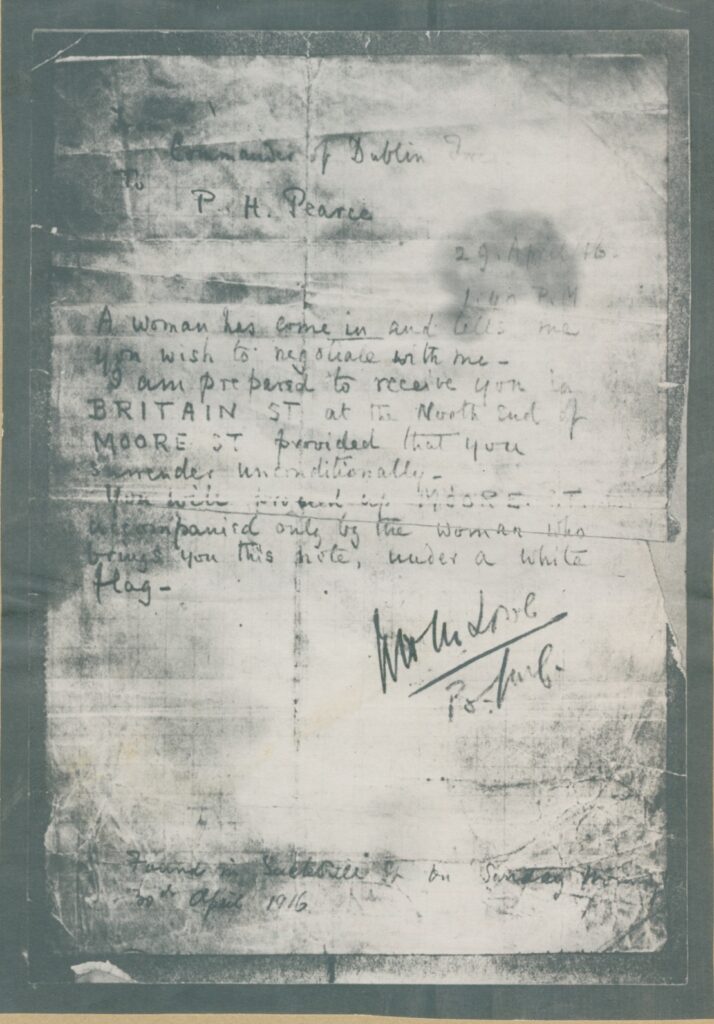 Commander of Dublin
To
P. H. Pearce
29 April 16.
1.40 P.M
A woman has come in and tells me
you wish to negotiate with me –
I am prepared to receive you in
BRITAIN ST at the North End of
MOORE ST provided that you
surrender unconditionally –
You will proceed up MOORE ST
accompanied only by the woman who
brings you this note, under a white
flag –
Lowe
Found in Sackville St on Sunday
30th April 1916.